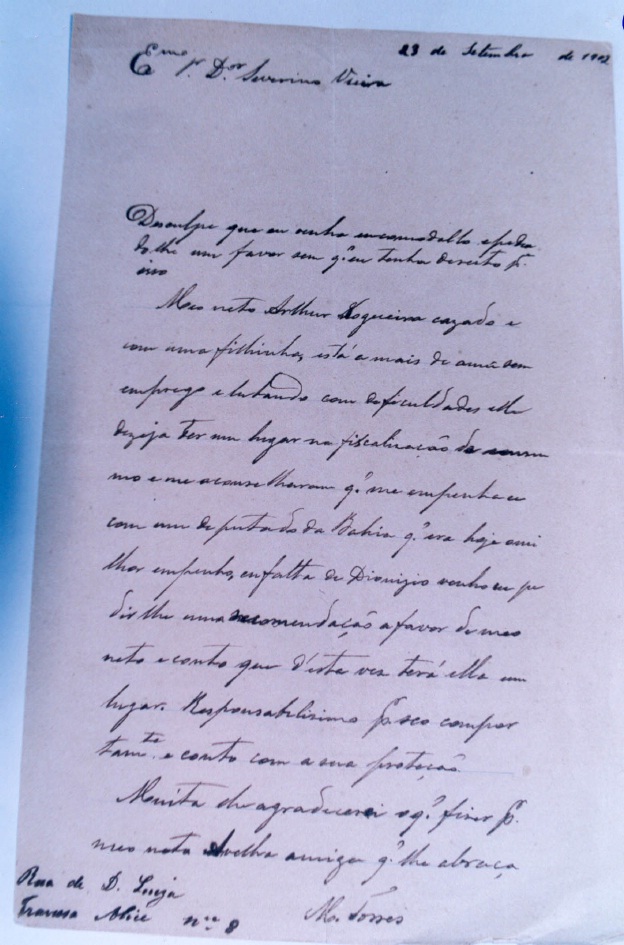 23 de Setembro de 1902
Exmo Sr. Dor Severino Vieira
Desculpe que eu venha encomodallo e pedin
do-lhe um favor sem q' eu tenha dereito pa.
isso
Meo neto Arthur Nogueira cazado e
com uma filhinha, está a mais de sem
emprego e lutando com deficuldades elle
dezeja ter um lugar na fiscalisação de consu
mo e me aconselharam q' me empenhace
com um deputado da Bahia q' era hoje omi
lhor empenho, enfalta de Dionizio venho eu pe
dir lhe uma recomendação a favor de meo
neto e conto que d'esta vez terá elle um
lugar. Responsabiliso-me por seo compor
tamte. e conto com a sua proteção
Muito lhe agradecerei o q' fizer pr.
meo neto Avelha amiga q' lhe abraça
Ma. Torres
Rua de D. Luiza
Travessa Alice no 8